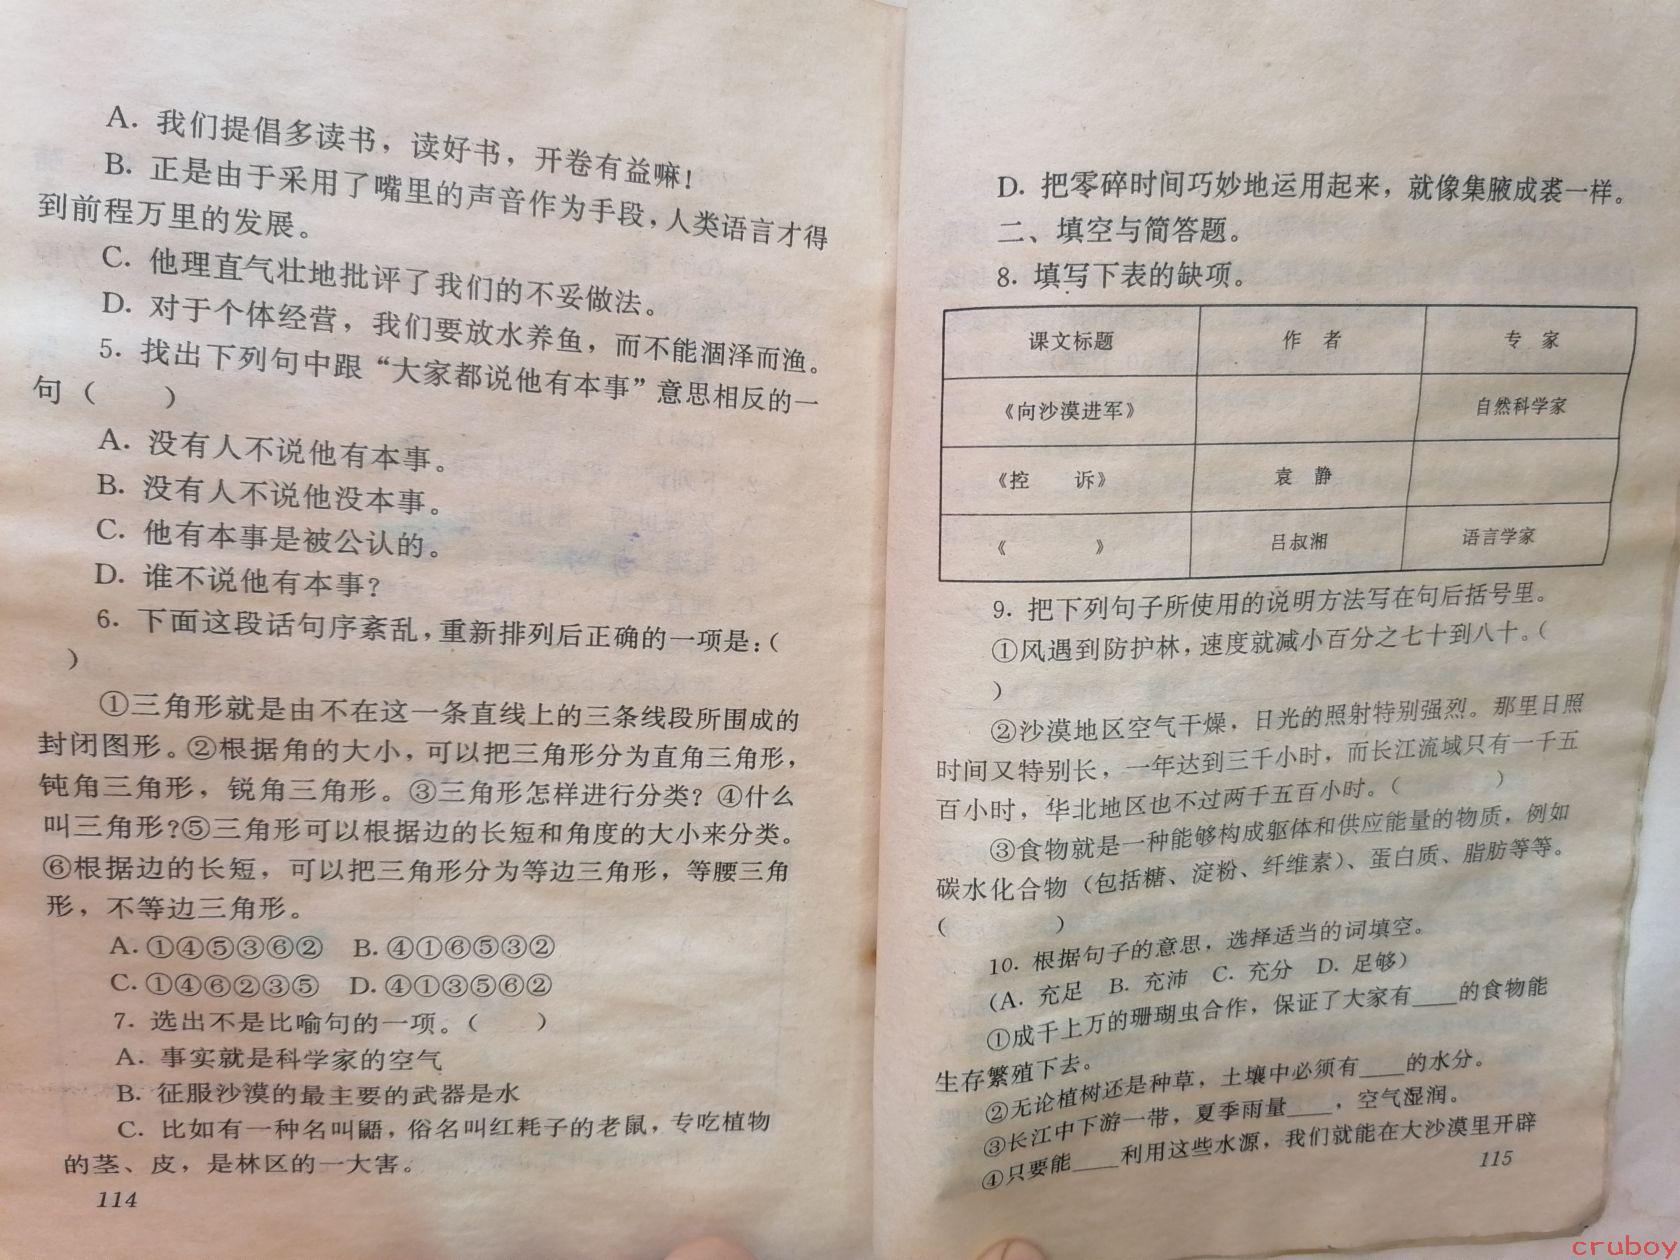 A. 我们提倡多读书，读好书，开卷有益嘛!
B. 正是由于采用了嘴里的声音作为手段，人类语言才得
到前程万里的发展。
C. 他理直气壮地批评了我们的不妥做法。
D. 对于个体经营，我们要放水养鱼，而不能涸泽而渔。
5. 找出下列句中跟“大家都说他有本事”意思相反的一
句（　　）
A. 没有人不说他有本事。
B. 没有人不说他没本事。
C. 他有本事是被公认的。
D. 谁不说他有本事?
6. 下面这段话句序紊乱，重新排列后正确的一项是:（
）
①三角形就是由不在这一条直线上的三条线段所围成的
封闭图形。②根据角的大小，可以把三角形分为直角三角形，
钝角三角形，锐角三角形。③三角形怎样进行分类? ④什么
叫三角形?⑤三角形可以根据边的长短和角度的大小来分类。
⑥根据边的长短，可以把三角形分为等边三角形，等腰三角
形，不等边三角形。
A. ①④⑤③⑥②　B. ④①⑥⑤③②
C. ①④⑥②③⑤　D. ④①③⑤⑥②
7. 选出不是比喻句的一项。（　　）
A. 事实就是科学家的空气
B. 征服沙漠的最主要的武器是水
C. 比如有一种名叫鼯，俗名叫红耗子的老鼠，专吃植物
的茎、皮，是林区的一大害。
114
D. 把零碎时间巧妙地运用起来，就像集腋成裘一样。
二、填空与简答题。
8. 填写下表的缺项。
课文标题　作　者　专　家
《向沙漠进军》　自然科学家
《控　诉》　袁　静
《　　》　吕叔湘　语言学家
9. 把下列句子所使用的说明方法写在句后括号里。
①风遇到防护林，速度就减小百分之七十到八十。（
）
②沙漠地区空气干燥，日光的照射特别强烈。那里日照
时间又特别长，一年达到三千小时，而长江流域只有一千五
百小时，华北地区也不过两千五百小时。（　　）
③食物就是一种能够构成躯体和供应能量的物质，例如
碳水化合物（包括糖、淀粉、纤维素）、蛋白质、脂肪等等。
（　　）
10. 根据句子的意思，选择适当的词填空。
（A. 充足　B. 充沛　C. 充分　D. 足够）
①成千上万的珊瑚虫合作，保证了大家有____的食物能
生存繁殖下去。
②无论植树还是种草，土壤中必须有____的水分。
③长江中下游一带，夏季雨量____，空气湿润。
④只要能____利用这些水源，我们就能在大沙漠里开辟
115
cruboy